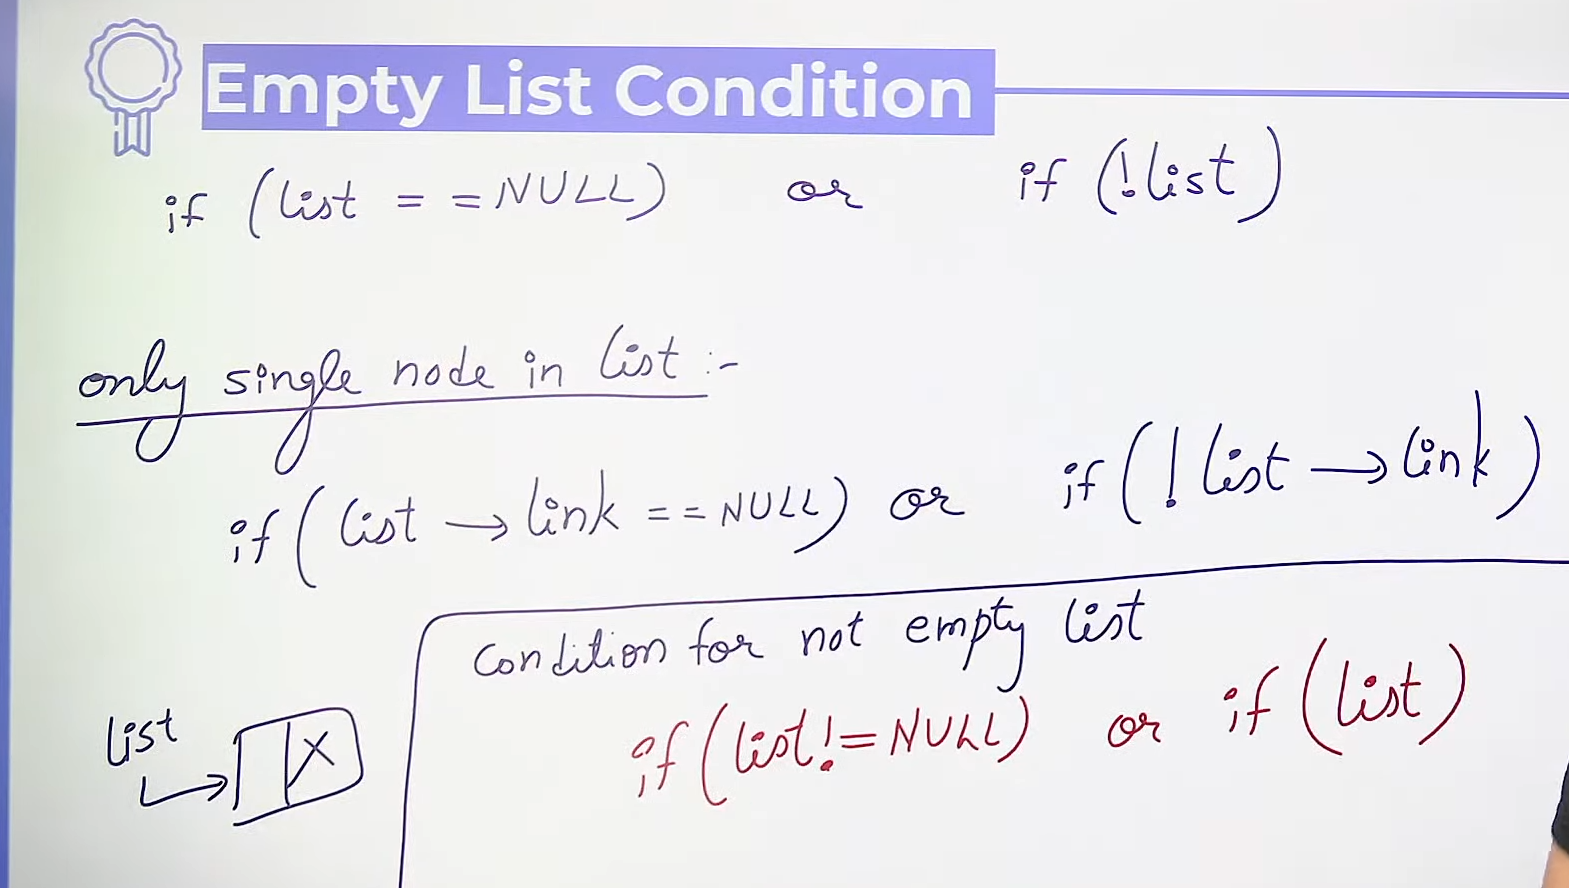 Empty List Condition
if (list == NULL) or if (!list)
only single node in list :-
if (list → link == NULL) or if (! list → link)
Condition for not empty list
if (list != NULL) or if (list)
list